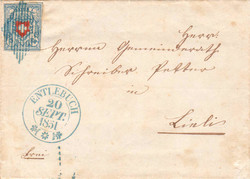 Herr
Herrn Gemeinderath
Schreiber Petter
in
Lieli
ENTLEBUCH
20
SEPT.
1851
frei